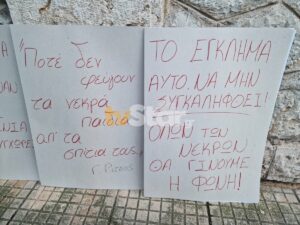 "Ποτέ δεν
φεύγουν
τα νεκρά
παιδιά
απ' τα
σπίτια τους"
Γ. Ρίτσος
ΤΟ ΕΓΚΛΗΜΑ
ΑΥΤΟ ΝΑ ΜΗΝ
ΣΥΓΚΑΛΗΦΘΕΙ!
ΟΛΩΝ ΤΩΝ
ΝΕΚΡΩΝ
ΘΑ ΓΙΝΟΥΜΕ
Η ΦΩΝΗ!
Star